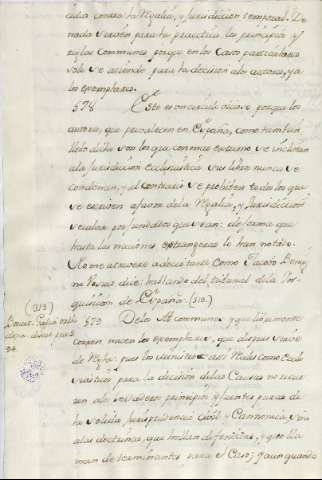 cuta contra la Regalia, y Jurisdiccion temporal. De
nada sirven para la practica los principios y
reglas communes porque en los casos particulares
solo se atiende para la decision a los autores, y a
los exemplares.
578 Este es un circulo vicioso porque los
autores, que prevalecen en España, como tambien
llebo dicho son los que con mas extremo se inclinan
a la Jurisdiccion ecclesiastica sus libros nunca se
condenan, y al contrario se prohiben todos los que
se escriven a favor de la Regalia, y Jurisdiccion
secular por fundados que sean: de forma que
hasta las naciones extrangeras lo han notado.
No me atreviera a decir tanto como Jacobo
dice: hablando del tribunal de la In-
quisicion de España. (313.)
(313)
579 De lo commun y que
nacen los exemplares, que despues sirven
de Regla: pues los Ministros assi Reales como Ecle-
siasticos para la decision de las Causas no recur-
ren a los verdaderos principios y fuentes puras de
la solida Jurisprudencia Civil y Canonica, sino
a las doctrinas, que hallan definitivas, y que lla-
man determinantes para el Caso; y aun quando